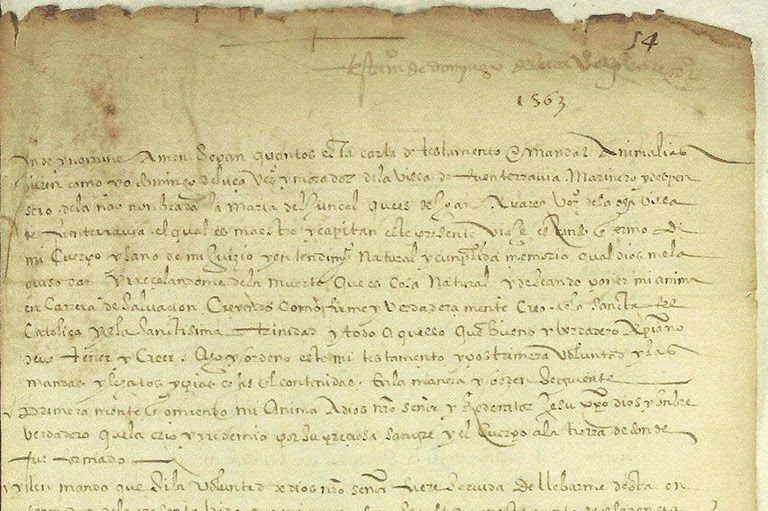 54
testamento de domingo de luca
1563
In dey nomine Amen Sepan quantos esta carta de testamento e mandas Animalias
vieren como yo domingo de luca vezº y morador de la villa de fuenterravia Marinero y despen
sero de la nao nonbrada la Maria del Juncal que es de Joan Xuares vezº de la dha villa
de fuenterravia el qual es maestre y capitan este presente viaje estando enfermo de
mi Cuerpo y sano de mi Juizio y entendimyº Natural y cunplida memoria qual dios me la
quiso dar y Recelandome de la muerte que es cosa Natural y deseando poner mi anima
en Carrera de Salvacion Creyendo Como firme y verdaderamente Creo en la sancta fee
Catolica y en la sanctisima trinidad y todo aquello que bueno y verdadero xpiano
deve tener y Creer. Ago y ordeno este mi testamento y postrimera voluntad y las
mandas y legatos y pias cosas en el contenidas En la manera y orden seguiente
Primeramente Encomiendo mi Anima A dios nro señor y Redemtor Jesu xpo dios y onbre
verdadero que la crio y redemio por su preciosa sangre y el Cuerpo a la tierra de donde
fue formado
yten mando que si la voluntad de dios nro señor fuere servida de llebarme desta en